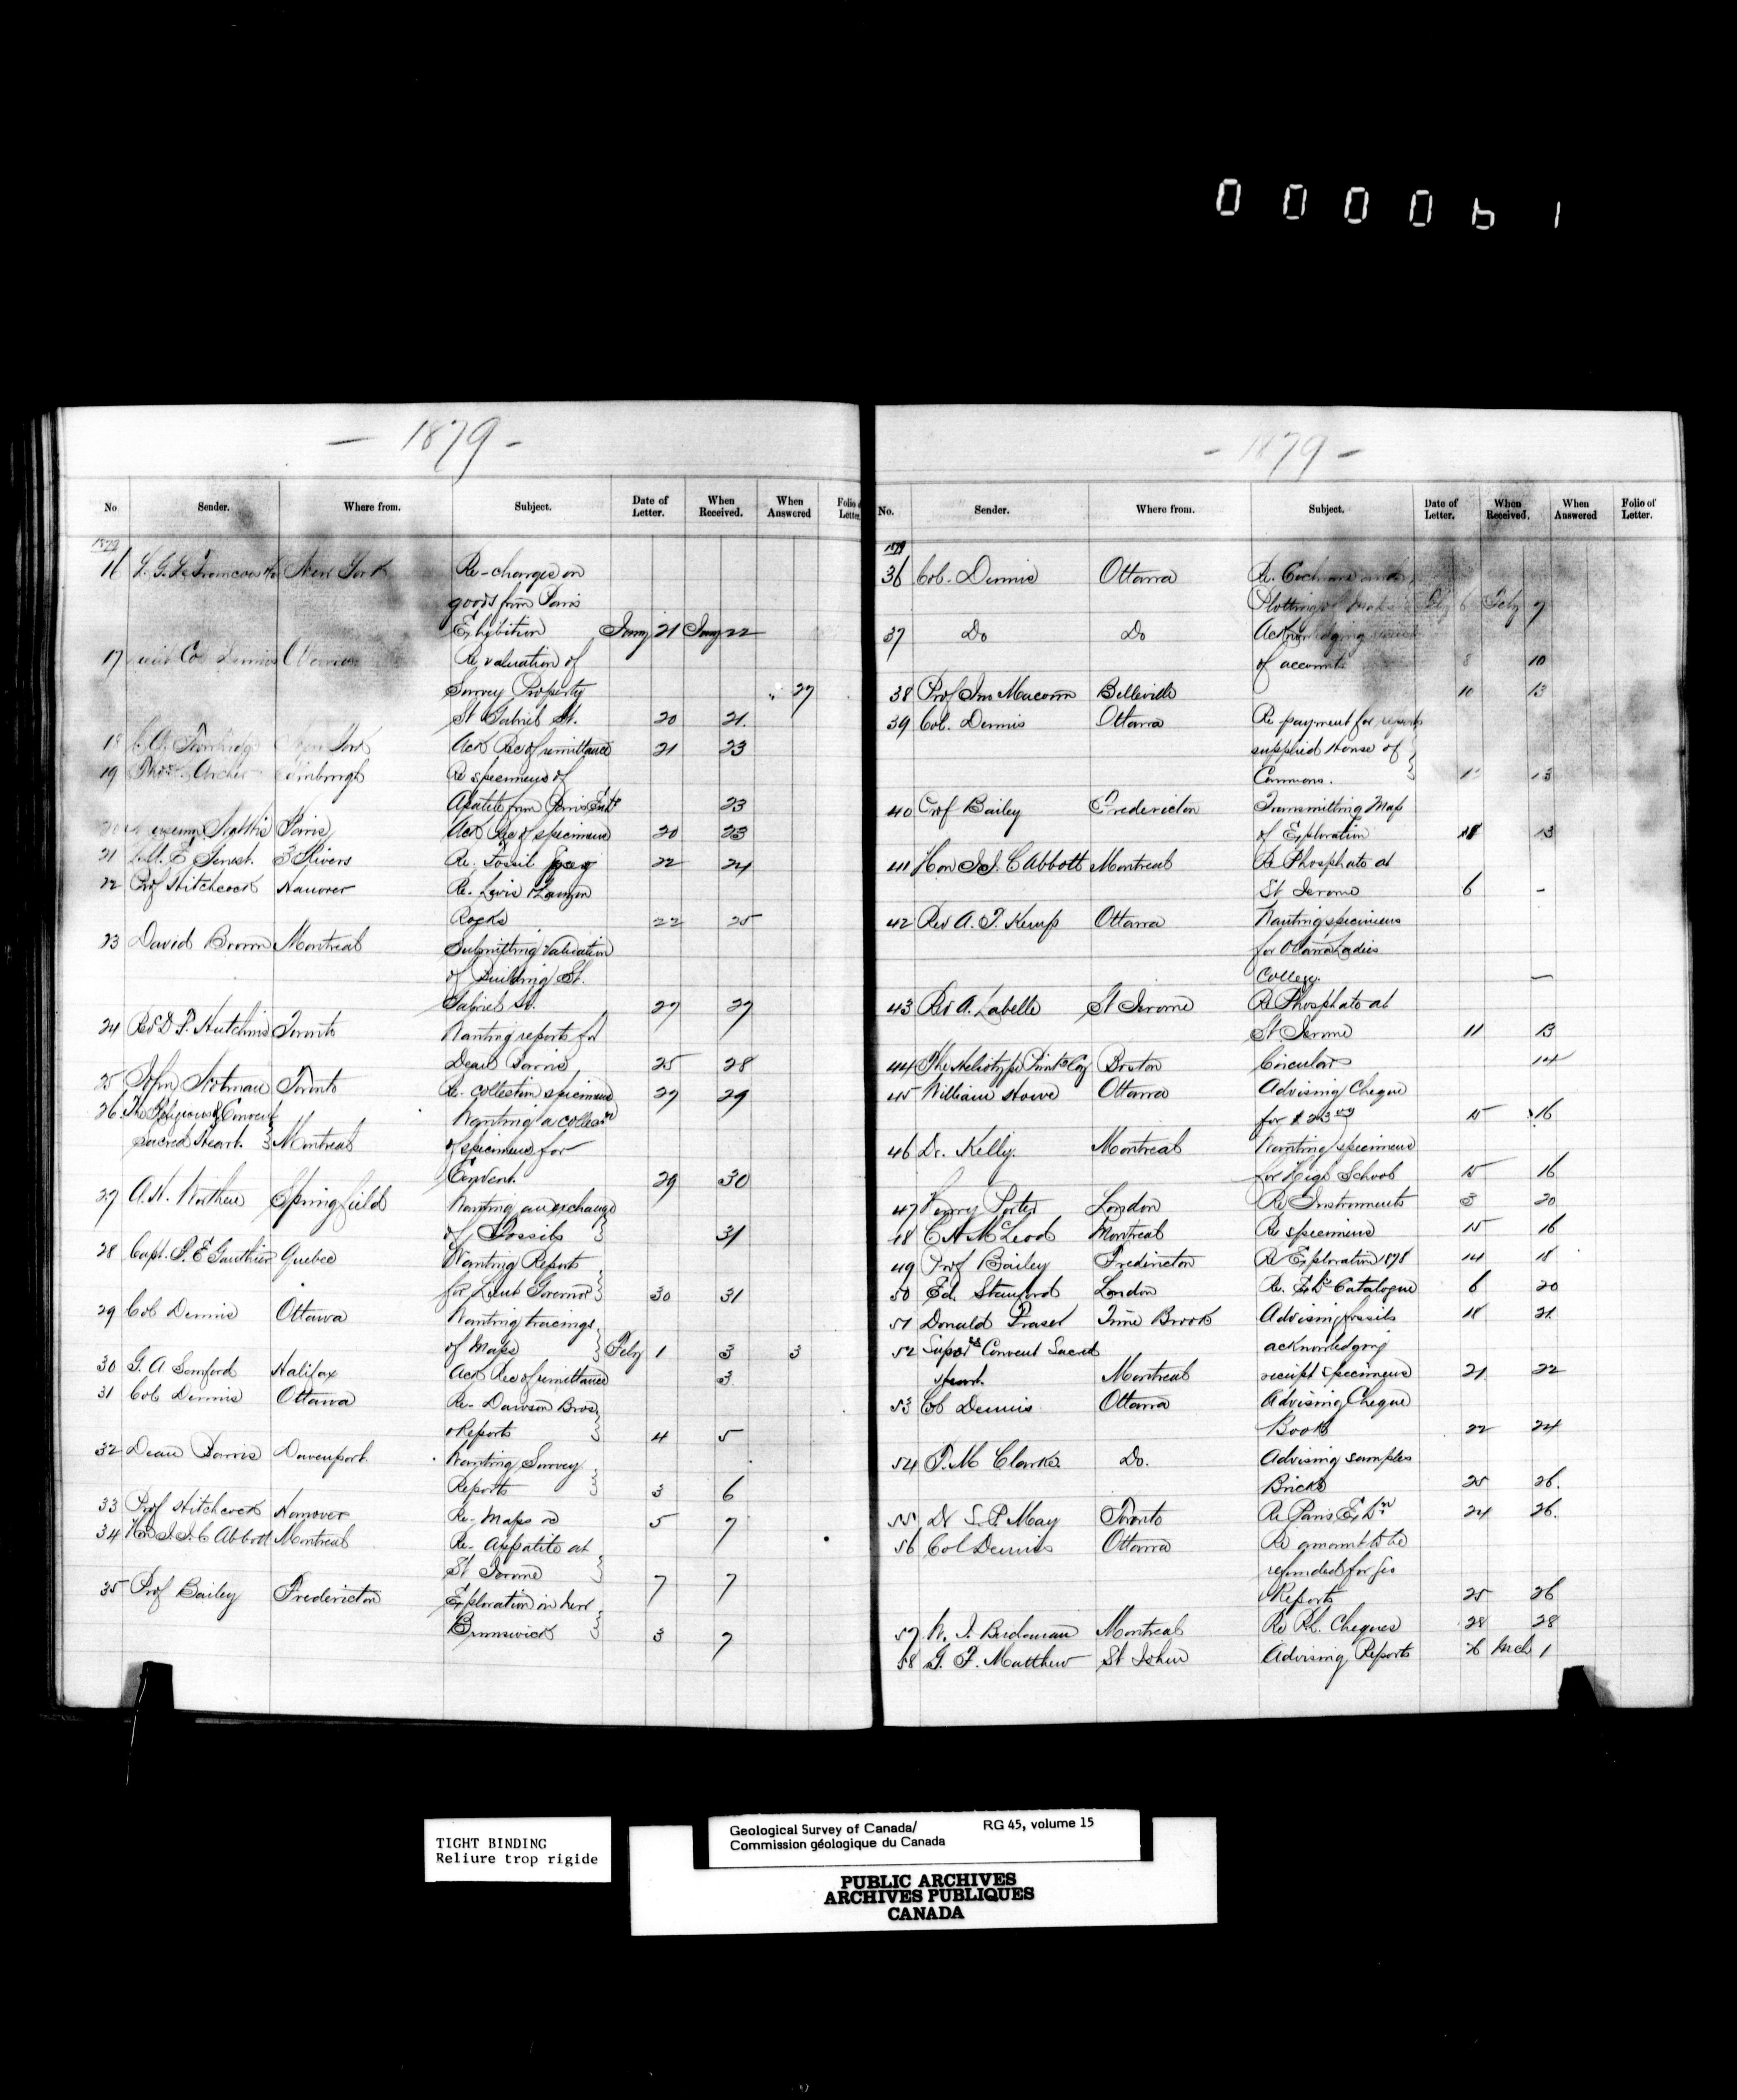 000061
- 1879 -
No Sender. Where from. Subject. Date of Letter. When Received. When Answered Folio Letter
1879
16 New York Re-charges on
goods from Paris
Exhibition Jany 21 Jany 22
17 Col Dennis Ottawa Re valuation of
Survey Property " 27
St Gabriel St. 20 21.
18 New York Ack Rec of remittance 21 23
19 Archer Edinburgh Re specimens of
Apatite from Paris Exbn 23
20 Paris Ack Rec of specimens 20 23
21 3 Rivers Re. Fossil 22 24
22 Prof Hitchcock Hanover Re. Levis & Lauzon
Rocks 22 25
23 David Brown Montreal Submitting valuation
of Building St.
Gabriel St. 27 27
24 Revd D F. Hutchins Toronto Wanting reports for
Dean 25 28
25 John Notman Toronto Re. collection specimens 27 29
26 The Religious of Convent Wanting a collecn
Sacred Heart. Montreal of specimens for
Convent. 29 30
27 A.H. Worthen Springfield Wanting an exchange
of Fossils 31
28 Capt. P. E Gauthier Quebec Wanting Reports
for Lieut Governor 30 31
29 Col Dennis Ottawa Wanting tracings
of Maps Feby 1 3 3
30 G. A Sanford Halifax Ack Rec of remittance 3.
31 Col Dennis Ottawa Re- Dawson Bros
& Reports 4 5
32 Dean Davenport. Wanting Survey
Reports 3 6
33 Prof Hitchcock Hanover Re- Maps &c 5 7
34 Hon J. J. C Abbott Montreal Re- Appatite at
St Jerome 7 7
35 Prof Bailey Fredericton Exploration in New
Brunswick 3 7
- 1879 -
No. Sender. Where from. Subject. Date of Letter. When Received. When Answered Folio of Letter.
1879
36 Col. Dennis Ottawa Re. Cochrane and
Plotting of Maps 6 Feby 7
37 Do Do Acknowledging
of accounts 8 10
38 Prof Jno Macoun Belleville 10 13
39 Col. Dennis Ottawa Re payment for reports
supplied House of
Commons. 13
40 Prof Bailey Fredericton Transmitting Map
of Exploration 13
41 Hon J. J. C Abbott Montreal Re Phosphate at
St Jerome 6 -
42 Rev A. F. Kemp Ottawa Wanting specimens
for Ottawa Ladies
College. -
43 Rev A. Labelle St Jerome Re Phosphate at
St Jerome 11 13
44 The Heliotype Printg Coy Boston Circular 14
45 William Howe Ottawa Advising Cheque
for $23 15 16
46 Dr. Kelly. Montreal Wanting specimens
for High School 15 16
47 Henry Porter London Re Instruments 3 20
48 C H McLeod Montreal Re specimens 15 16
49 Prof Bailey Fredericton Re Exploration 1878 14 18
50 Ed. Stanford London Re. Exbn Catalogue 6 20
51 Donald Fraser Brook Advising fossils 18 21.
52 Supor Convent Sacred acknowledging
Heart. Montreal receipt specimens 21. 22
53 Col Dennis Ottawa Advising Cheque
Book 22 24
54 T. M Clarke Do. Advising samples
Bricks 25 26.
55 Dr S. P. May Toronto Re Paris Exbn 24 26.
56 Col Dennis Ottawa Re amount to be
refunded for Geo
Reports 25 26
57 Montreal Re Cheques 28 28
58 G. F. Matthew St John Advising Reports 26 Mch 1
TIGHT BINDING
Reliure trop rigide
Geological Survey of Canada/ RG 45, volume 15
Commission géologique du Canada
PUBLIC ARCHIVES
ARCHIVES PUBLIQUES
CANADA